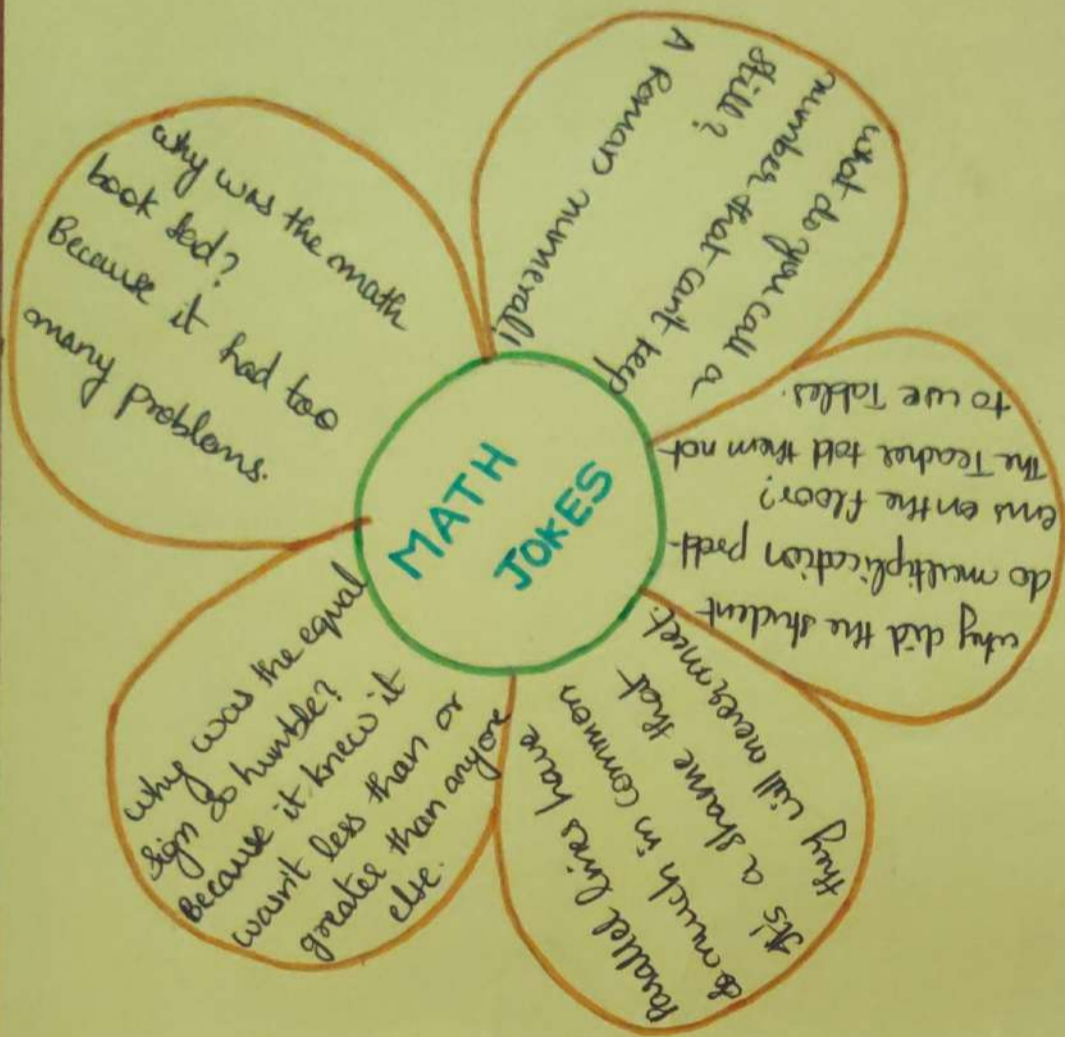 MATH
JOKES
why was the math
book sad?
Because it had too
many problems.
what do you call a
number that can't keep
still?
A Roman numeral!
why did the student
do multiplication probl-
ems on the floor?
The Teacher told them not
to use Tables.
Parallel lines have
so much in common
It's a shame that
they will never meet.
why was the equal
sign so humble?
Because it knew it
wasn't less than or
greater than anyone
else.